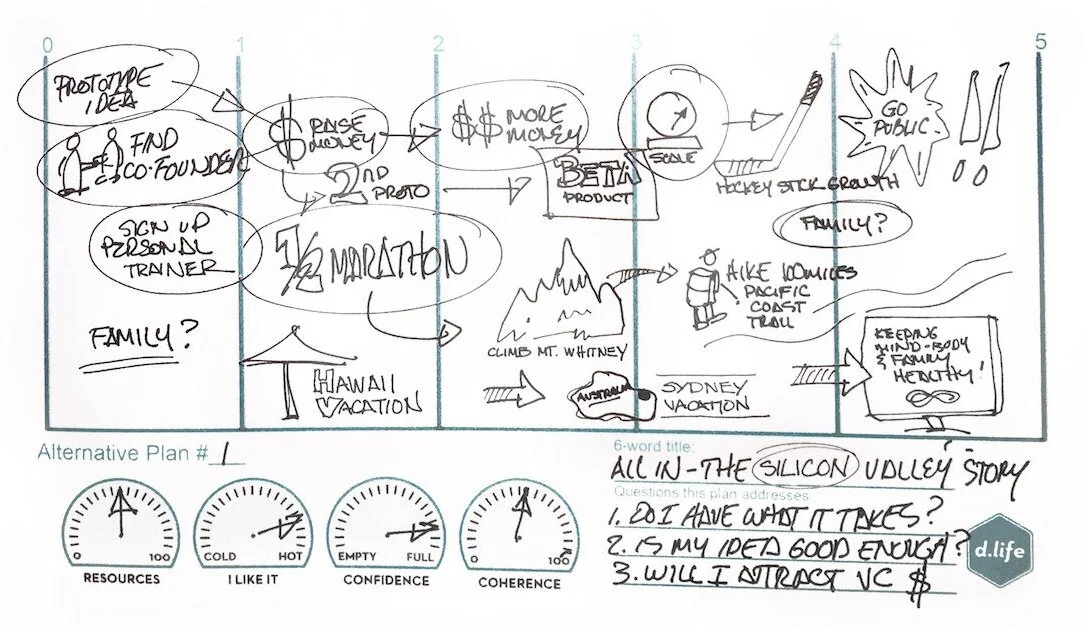 0 1 2 3 4 5
PROTOTYPE
IDEA
FIND
CO-FOUNDER
$ RAISE
MONEY
2ND
PROTO
$$ MORE
MONEY
BETA
PRODUCT
SCALE
HOCKEY STICK GROWTH
GO
PUBLIC
!!
SIGN UP
PERSONAL
TRAINER
1/2 MARATHON
CLIMB MT. WHITNEY
HIKE 100 MILES
PACIFIC
COAST
TRAIL
FAMILY?
FAMILY?
HAWAII
VACATION
AUSTRALIA
SYDNEY
VACATION
KEEPING
MIND-BODY
& FAMILY
HEALTHY!
Alternative Plan # 1
0 100
RESOURCES
COLD HOT
I LIKE IT
EMPTY FULL
CONFIDENCE
0 100
COHERENCE
6-word title:
ALL IN-THE SILICON VALLEY STORY
Questions this plan addresses
1. DO I HAVE WHAT IT TAKES?
2. IS MY IDEA GOOD ENOUGH?
3. WILL I ATTRACT VC $
d.life